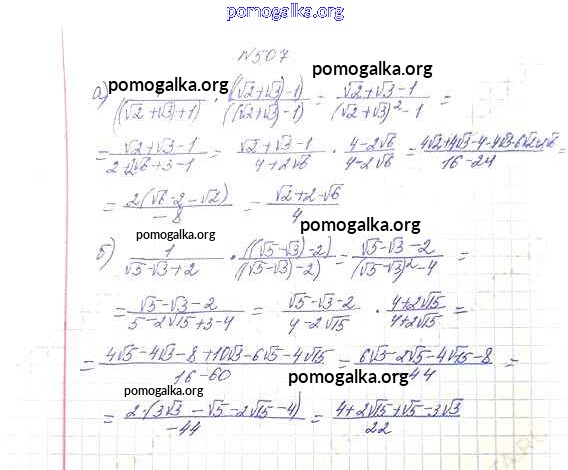 pomogalka.org
N507
pomogalka.org pomogalka.org
а) /((√2+√3)+1) · ((√2+√3)-1)/((√2+√3)-1) = (√2+√3-1)/((√2+√3)²-1) =
= (√2+√3-1)/(2+2√6+3-1) = (√2+√3-1)/(4+2√6) · (4-2√6)/(4-2√6) = /(16-24)
= 2(√6-2-√2)/(-8) = (√2+2-√6)/4
pomogalka.org pomogalka.org
б) 1/(√5-√3+2) · ((√5-√3)-2)/((√5-√3)-2) = (√5-√3-2)/((√5-√3)²-4) =
pomogalka.org
= (√5-√3-2)/(5-2√15+3-4) = (√5-√3-2)/(4-2√15) · (4+2√15)/(4+2√15) =
= (4√5-4√3-8+10√3-6√5-4√15)/(16-60) = (6√3-2√5-4√15-8)/44 =
pomogalka.org pomogalka.org
= 2·(3√3-√5-2√15-4)/(-44) = (4+2√15+√5-3√3)/22
pomogalka.org